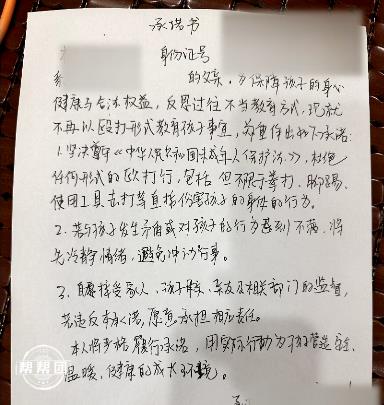 承诺书
身份证号
的父亲,为保障孩子的身心
健康与合法权益,反思过往不当教育方式,现就
不再以殴打形式教育孩子事宜,郑重作出如下承诺:
1.坚决遵守《中华人民共和国未成年人保护法》,杜绝
任何形式的殴打行,包括但不限于拳打、脚踢、
使用工具击打等直接伤害孩子的身体的行为。
2.若与孩子发生矛盾或对孩子的行为感到不满,将
先冷静情绪,避免冲动行事。
3.自愿接受家人、孩子、亲友及相关部门的监督,
若违反本承诺,愿意承担相应责任。
本人将严格履行承诺,用实际行动为孩子营造安全、
温暖、健康的成长环境。
帮帮团